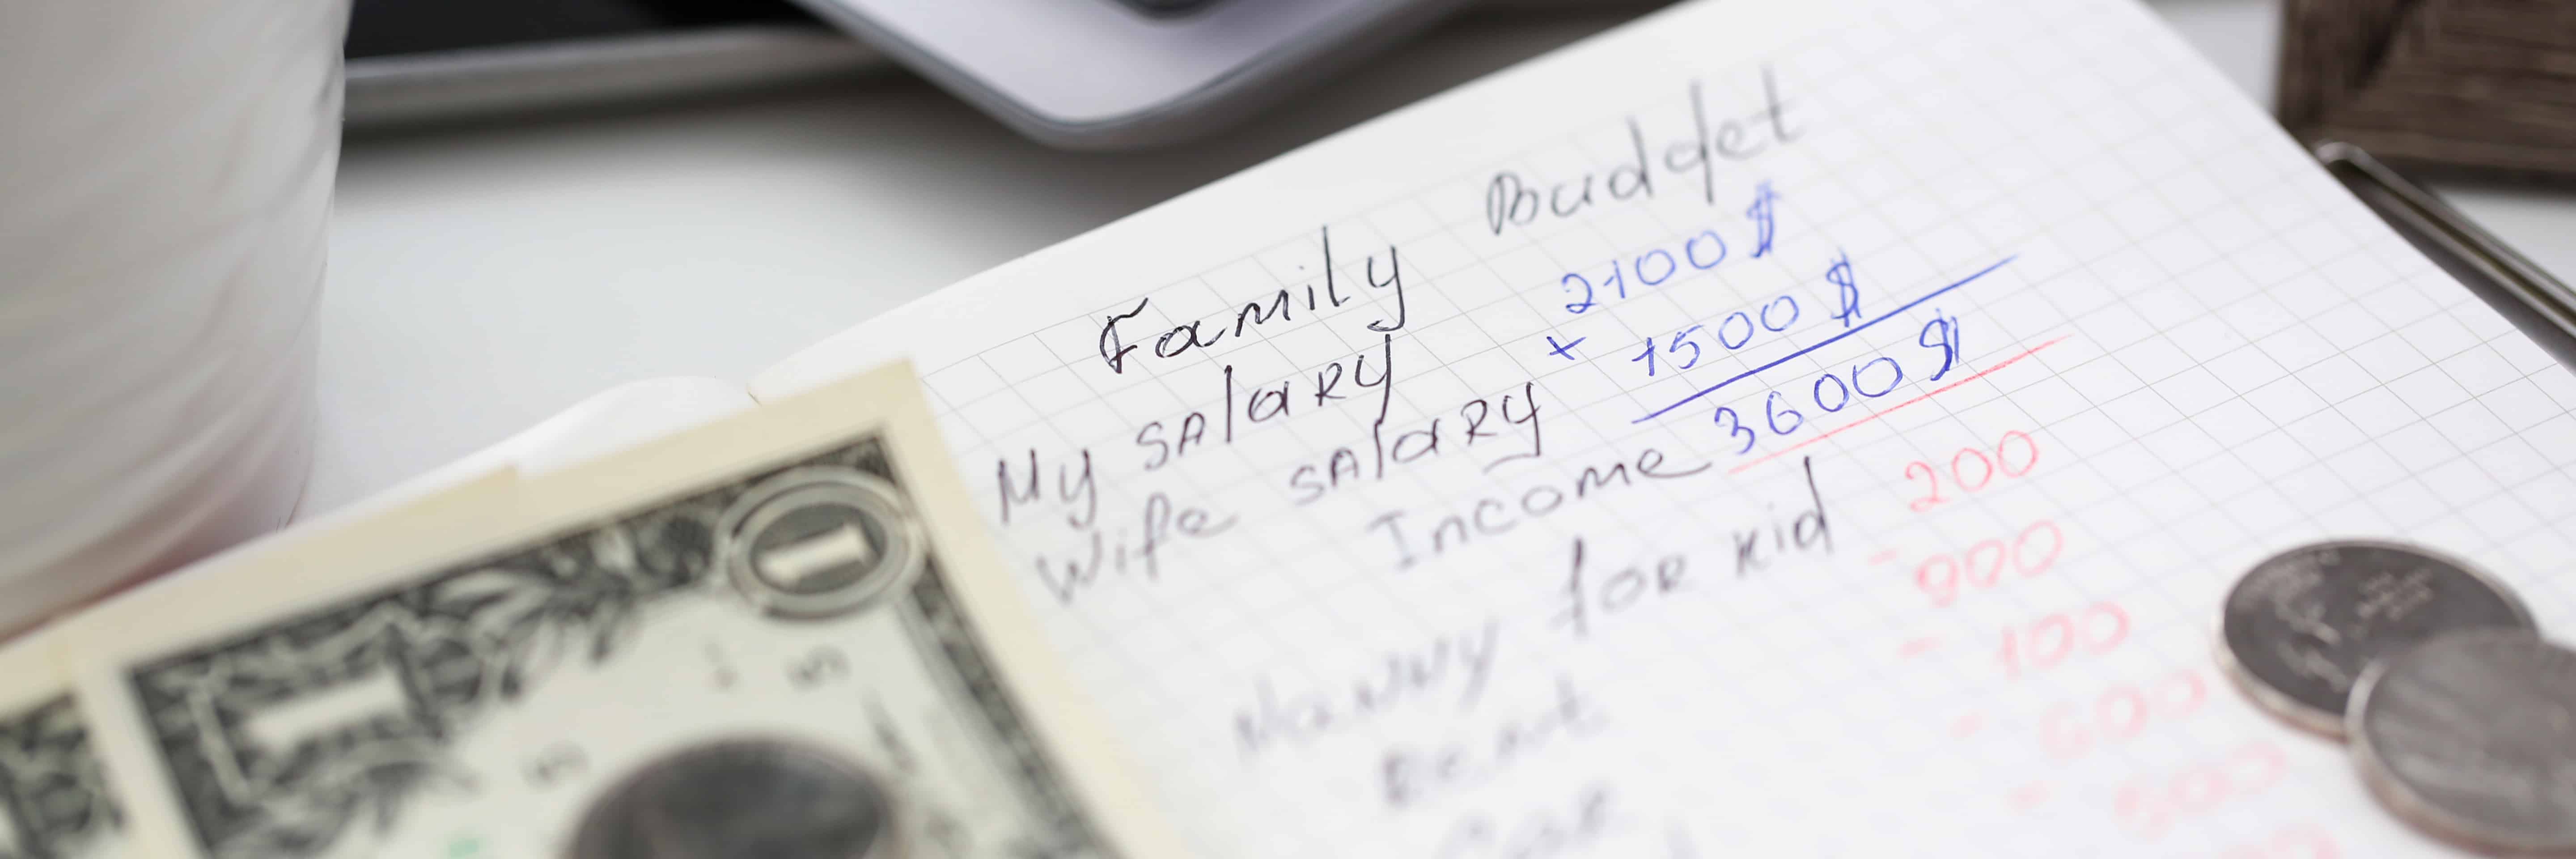 Family Budget
My salary 2100$
Wife salary + 1500$
Income 3600$
Nanny for kid 200
Rent - 900
Car - 100
- 600
- 500